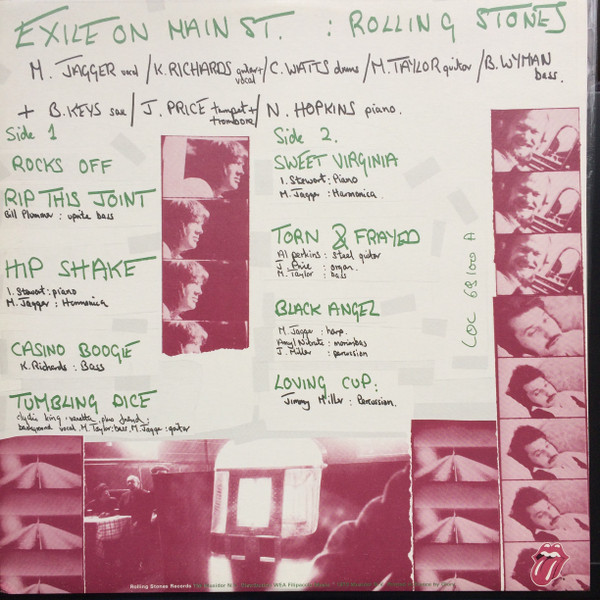 EXILE ON MAIN ST. : ROLLING STONES
M. JAGGER vocal / K. RICHARDS guitar + vocal / C. WATTS drums / M. TAYLOR guitar / B. WYMAN bass.
+ B. KEYS sax / J. PRICE trumpet + trombone / N. HOPKINS piano.
Side 1
ROCKS OFF
RIP THIS JOINT
Bill Plummer : uprite bass
HIP SHAKE
I. Stewart : piano
M. Jagger : Harmonica
CASINO BOOGIE
K. Richards : Bass
TUMBLING DICE
clydie king : vanetta plus friend :
background vocal. M. Taylor : bass. M. Jagger : guitar
Side 2.
SWEET VIRGINIA
I. Stewart : Piano
M. Jagger : Harmonica.
TORN & FRAYED
Al perkins : steel guitar
J. Price : organ.
M. Taylor : bass
BLACK ANGEL
M. Jagger : harp.
Amyl Nitrate : marimbas
J. Miller : percussion
LOVING CUP :
Jimmy Miller : Percussion.
COC 69100 A
Rolling Stones Records